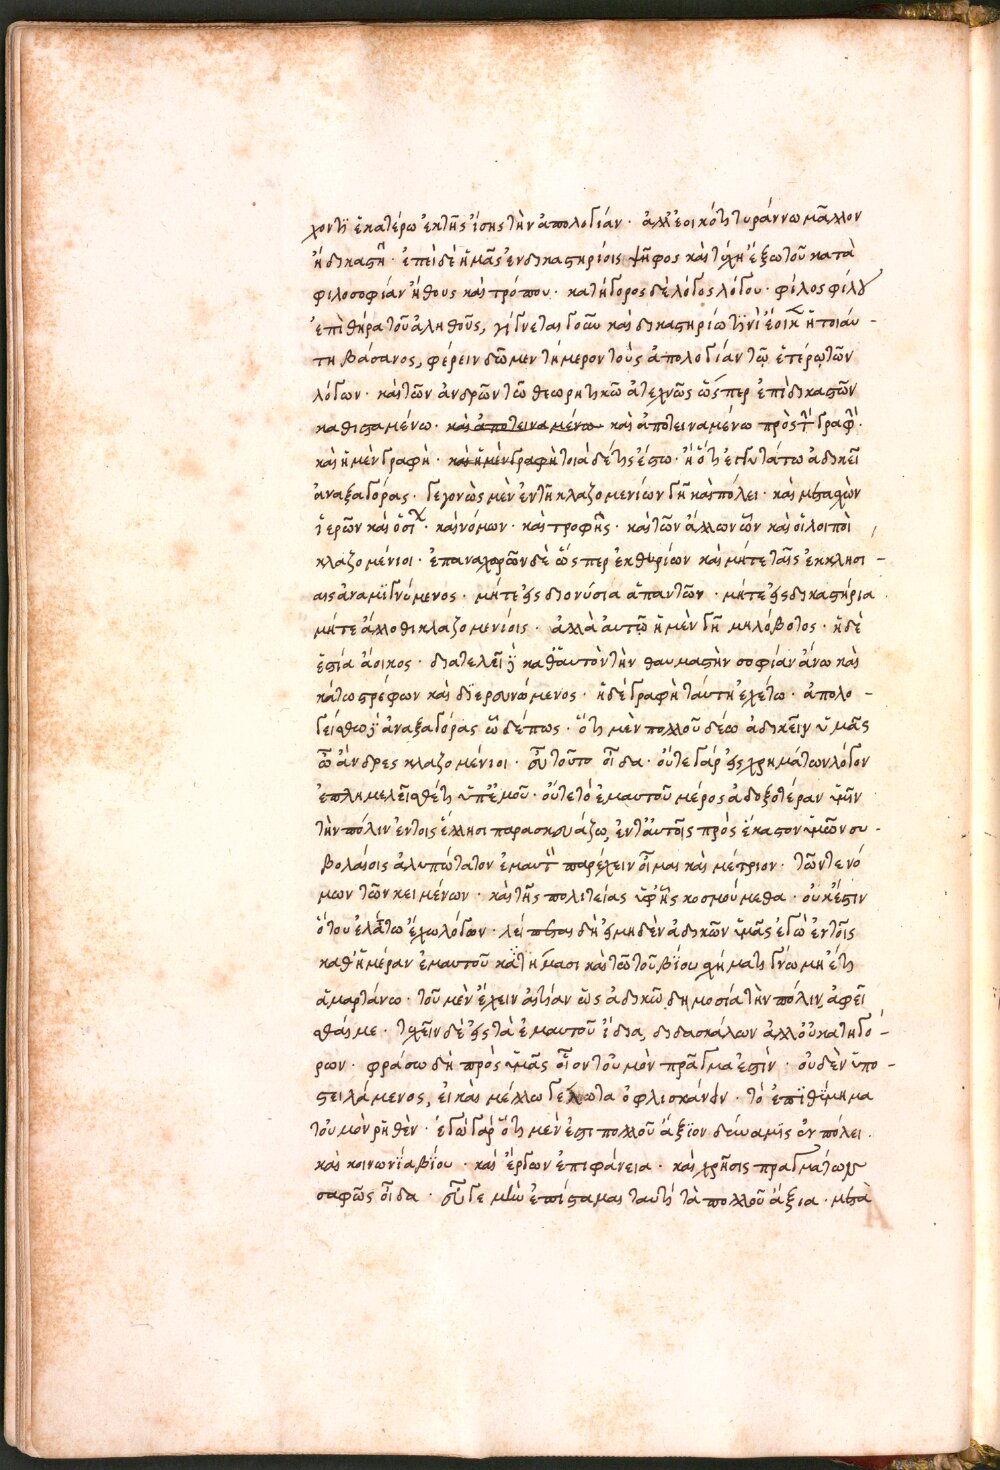 χοντι ἑκατέρω ἐκ τῆς ἴσης τὴν ἀπολογίαν · ἀλλ' ἐοικότι τυράννω μᾶλλον
ἢ δικαστῆ · ἐπεὶ δὲ ἡμᾶς ἐν δικαστηρίοις ψῆφος καὶ τύχη ἔξω τοῦ κατὰ
φιλοσοφίαν ἤθους καὶ τρόπου · κατήγορος δὲ λόγος λόγου · φίλος φίλου
ἐπὶ θήρα τοῦ ἀληθοῦς, γίγνεται γοῦν καὶ δικαστηρίω τινὶ ἐοικ ἡ τοιαύ -
τη βάσανος, φέρειν δῶμεν τήμερον τοὺς ἀπολογίαν τῶ ἑτέρω τῶν
λόγων · καὶ τῶν ἀνδρῶν τῶ θεωρητικῶ ἀτεχνῶς ὥσπερ ἐπὶ δικαστῶν
καθισταμένω · καὶ ἀποτειναμένω καὶ ἀποτειναμένω πρὸς τ γραφ ·
καὶ ἡ μὲν γραφὴ · καὶ ἡ μὲν γραφὴ τοιάδε τὶς ἔστω · ἢ ὅτι ἐστὶν τάτω ἀδικεῖ
ἀναξαγόρας · γεγονὼς μὲν ἐν τῆ κλαζομενίων γῆ καὶ πόλει · καὶ μετασχὼν
ἱερῶν καὶ ὁσί · καὶ νόμων · καὶ τροφῆς · καὶ τῶν ἄλλων ὧν καὶ οἱ λοιποὶ
κλαζομένιοι · ἐπαναχωρῶν δὲ ὥσπερ ἐκ θηρίων καὶ μήτε ταῖς ἐκκλησί -
αις ἀναμϊγνύμενος · μήτε ἐς διονύσια ἀπαντῶν · μήτε ἐς δικαστήρια
μήτε ἄλλοθι κλαζομενίοις · ἀλλὰ αὐτῶ ἡ μὲν γῆ μηλόβοτος · ἡ δὲ
ἑστία ἄοικος · διατελεῖ καθ' αὑτὸν τὴν θαυμαστὴν σοφίαν ἄνω καὶ
κάτω στρέφων καὶ διερευνώμενος · ἡ δὲ γραφὴ ταύτη ἐχέτω · ἀπολο -
γείσθω ἀναξαγόρας ὧδέ πως · ὅτι μὲν πολλοῦ δέω ἀδικεῖν ὑμᾶς
ὦ ἄνδρες κλαζομένιοι · εὖ τοῦτο οἶδα · οὔτε γάρ ἐς χρημάτων λόγον
ἐπλημελεῖσθέ τι ὑπ' ἐμοῦ · οὔτε τὸ ἐμαυτοῦ μέρος ἀδοξοτέραν ὑμῖν
τὴν πόλιν ἐν τοῖς ἕλλησι παρασκευάζω, ἔν τ' αὐτοῖς πρὸς ἕκαστον ὑμῶν συ -
βολαίοις ἀλυπώτατον ἐμαυτ παρέχειν οἶμαι καὶ μέτριον · τῶν τε νό
μων τῶν κειμένων · καὶ τῆς πολιτείας ὑφ' ἧς κοσμούμεθα · οὐκ ἔστιν
ὅτου ἐλάττω ἔχω λόγων · λεί δὴ ἐς μηδὲν ἀδικῶν ὑμᾶς ἐγὼ ἐν τοῖς
καθ' ἡμέραν ἐμαυτοῦ κατήμασι καὶ τῶ τοῦ βίου σχήματι γνώμη ἔτι
ἁμαρτάνω · τοῦ μὲν ἔχειν αἰτίαν ὡς ἀδικῶ δημοσία τὴν πόλιν, ἀφεῖ
σθαί με · τυχεῖν δὲ ἐς τὰ ἐμαυτοῦ ἴδια, διδασκάλων ἀλλ' οὐ κατηγό -
ρων · φράσω δὴ πρὸς ὑμᾶς οἷον τοὐμὸν πρᾶγμα ἐστὶν · οὐδὲν ὑπο -
στειλάμενος, εἰ καὶ μέλλω γέλωτα ὀφλισκάνειν · τὸ ἐπϊθίμημα
τοὐμὸν ῥηθὲν · ἐγὼ γὰρ ὅτι μὲν ἐστι πολλοῦ ἄξϊον δύναμις ἐν πόλει .
καὶ κοινωνία βίου · καὶ ἔργων ἐπιφάνεια · καὶ χρῆσις πραγμάτων
σαφῶς οἶδα · εὖ γε μὴν ἐπίσταμαι ταυτὶ τὰ πολλοῦ ἄξια · μετὰ